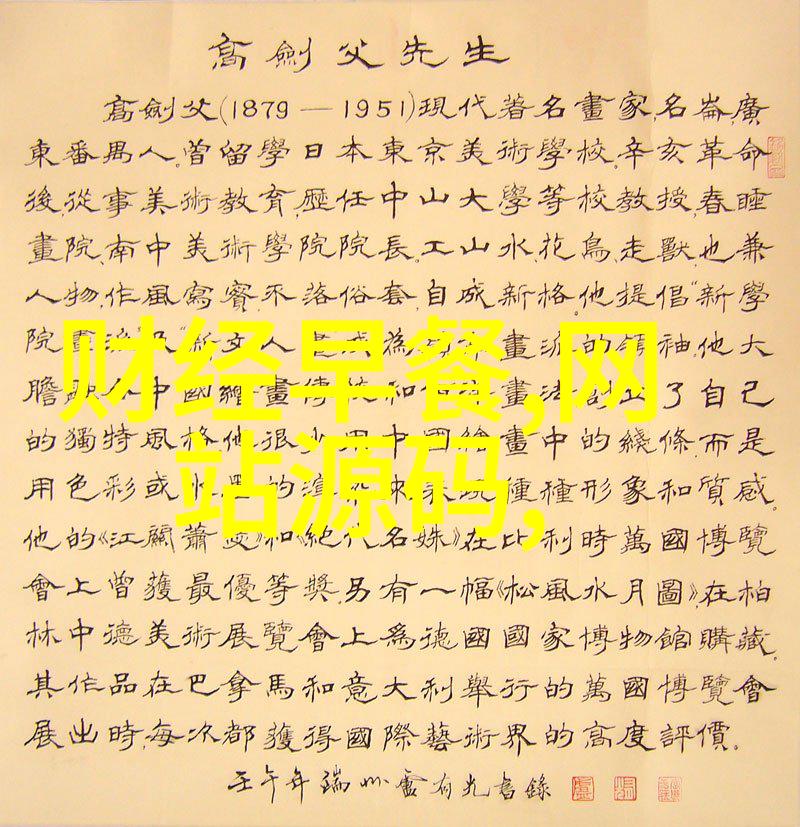 高劍父先生
高劍父(1879—1951)現代著名畫家,名崙,廣
東番禺人。曾留學日本東京美術學校。辛亥革命
後,從事美術教育,歷任中山大學等校教授,春睡
畫院,南中美術學院院長。工山水,花鳥,走獸,也兼
人物,作風寫實,不落俗套,自成新格。他提倡"新學
院畫 文人 為 畫派的領袖。他大
膽 中國繪畫傳 和 畫法 了自己
的獨特風格。他很少用中國繪畫中的綫條,而是
用色彩或水墨的渲 表現種種形象和質感。
他的《江關蕭 》和《絕代名姝》在比利時萬國博覽
會上曾獲最優等獎。另有一幅《松風水月圖》,在柏
林中德美術展覽會上為德國國家博物館購藏。
其作品在巴拿馬和意大利舉行的萬國博覽會
展出時,每次都獲得國際藝術界的高度評價。
壬午年端州盧有光書錄
财经早餐,网
站源码,